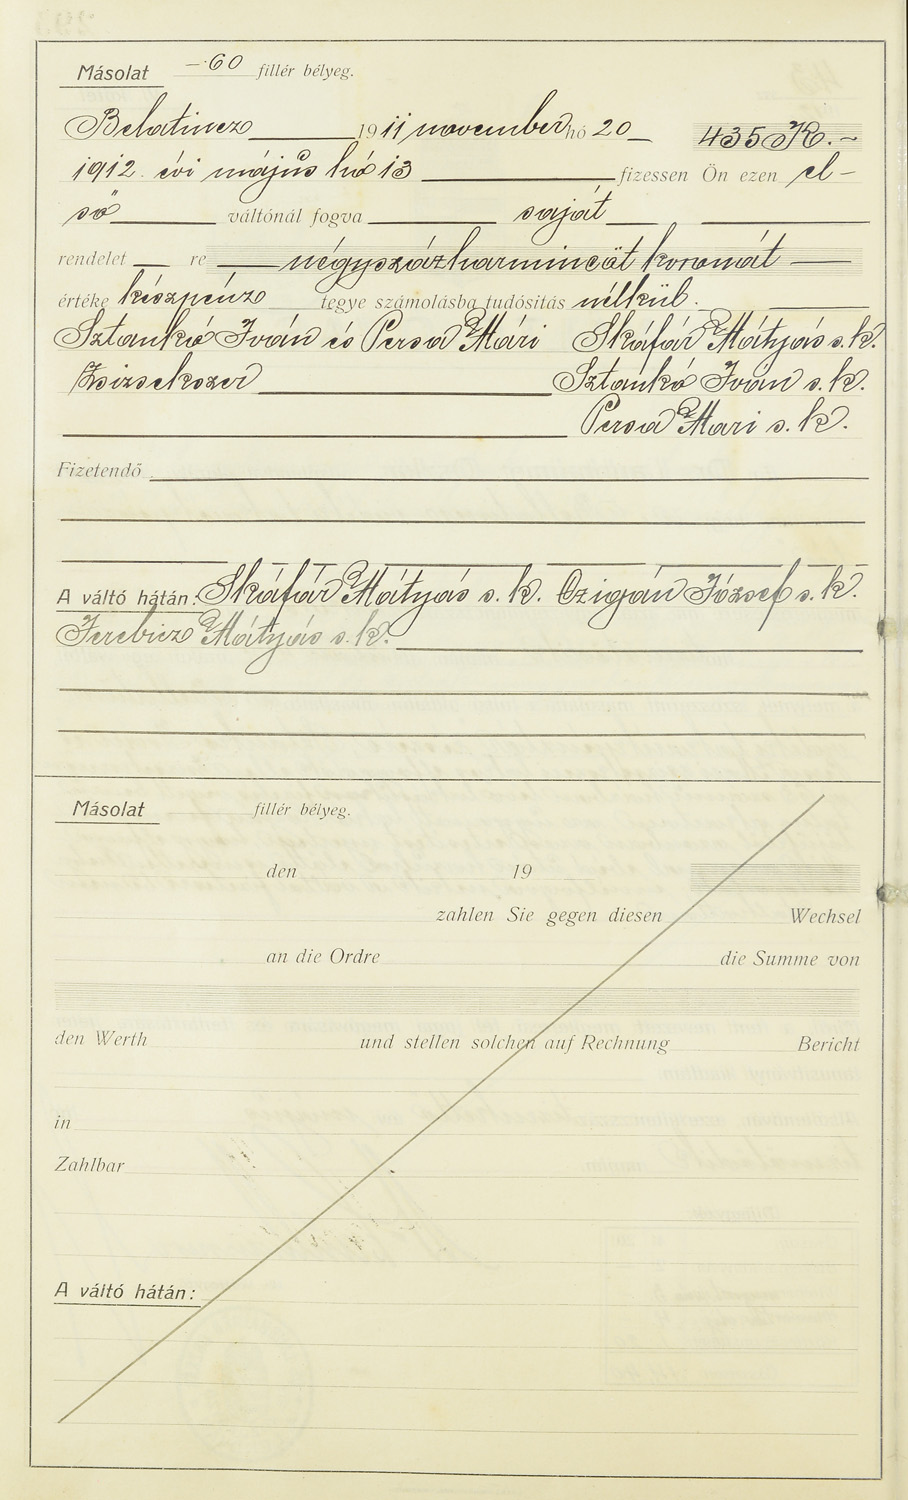 Másolat —·60 fillér bélyeg.
Belatincz 1911 november hó 20 435 K.—
1912. évi május hó 13 fizessen Ön ezen el-
ső váltónál fogva saját
rendelet re négyszázharmincöt koronát
értéke készpénz tegye számolásba tudósitás nélkül.
Sztankó Iván és Persa Mári Skáfár Mátyás s. k.
Zsizsekszer Sztankó Iván s. k.
Persa Mari s. k.
Fizetendő
A váltó hátán: Skáfár Mátyás s. k. Czigán József s. k.
Ferebicz Mátyás s. k.
Másolat fillér bélyeg.
den 19
zahlen Sie gegen diesen Wechsel
an die Ordre die Summe von
den Werth und stellen solchen auf Rechnung Bericht
in
Zahlbar
A váltó hátán: